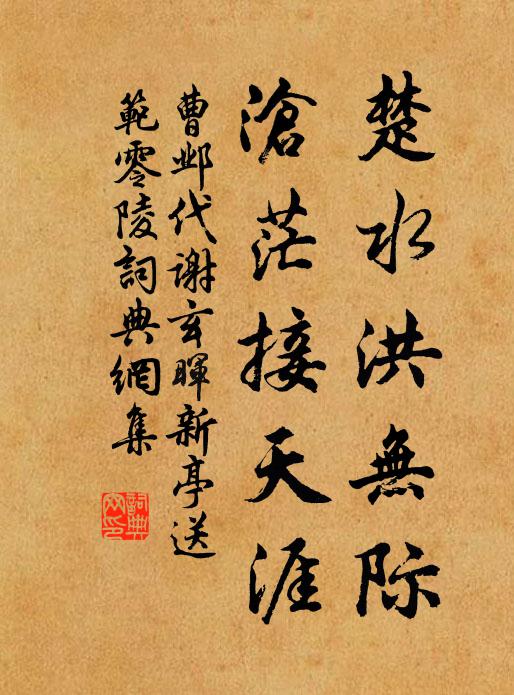 楚水洪無际
滄茫接天涯
曹邺代谢玄暉新亭送
範零陵詞典網集
詞典网印